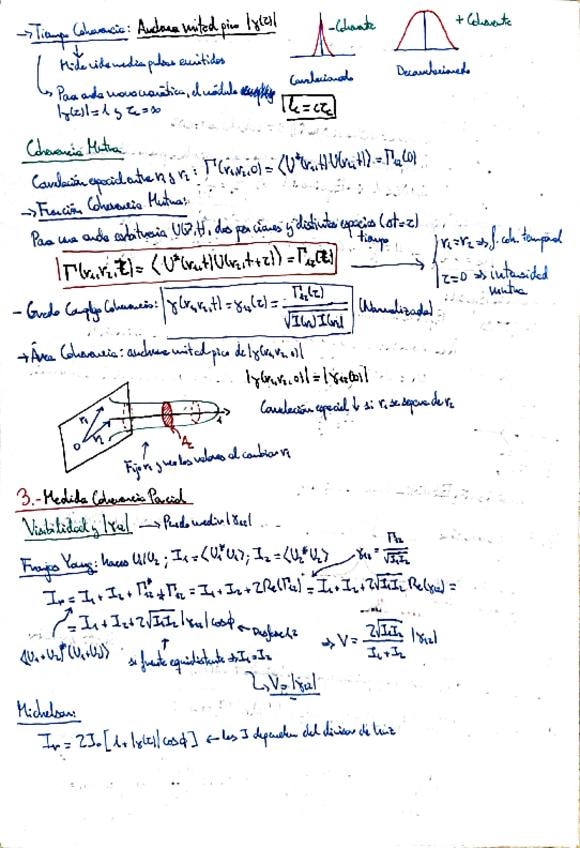 → Tiempo Coherencia: Anchura mitad pico |γ(τ)|
- Coherente
+ Coherente
Mide vida media pulsos emitidos
Correlacionado
Decorrelacionado
Para onda monocromática, el módulo
|γ(τ)|=1 y τc=∞
lc=cτc
Coherencia Mutua
Correlación espacial entre r1 y r2: Γ(r1,r2,0) = ⟨U*(r1,t)U(r2,t)⟩ = Γ12(0)
→ Función Coherencia Mutua:
Para una onda arbitraria U(r,t), dos posiciones y distintos espacios (Δt=τ)
tiempo
Γ(r1,r2,τ) = ⟨U*(r1,t)U(r2,t+τ)⟩ = Γ12(τ)
r1=r2 ⇒ f. coh. temporal
τ=0 ⇒ intensidad mutua
- Grado Complejo Coherencia: γ(r1,r2,t) = γ12(τ) = Γ12(τ) / √I(r1)I(r2) (Normalizada)
→ Área Coherencia: anchura mitad pico de |γ(r1,r2,0)|
|γ(r1,r2,0)| = |γ12(0)|
Correlación espacial ↓ si r1 se separa de r2
r1
r2
0
Ac
Fijo r1 y veo los valores al cambiar r2
3.- Medida Coherencia Parcial
Visibilidad y |γ12| → Puedo medir |γ12|
Franjas Young: haces U1 U2; I1=⟨U1*U1⟩; I2=⟨U2*U2⟩
γ12 = Γ12 / √I1I2
= I1 + I2 + Γ12* + Γ12 = I1 + I2 + 2Re(Γ12) = I1 + I2 + 2√I1I2 Re(γ12) =
= I1 + I2 + 2√I1I2 |γ12| cosϕ ← Desfase 1,2
⇒ V = 2√I1I2 / I1+I2 |γ12|
⟨(U1+U2)*(U1+U2)⟩
si fuente equidistante ⇒ I1=I2
↳ V=|γ12|
Michelson:
= 2I0 [1+|γ(τ)| cosϕ] ← las I dependen del divisor de luz